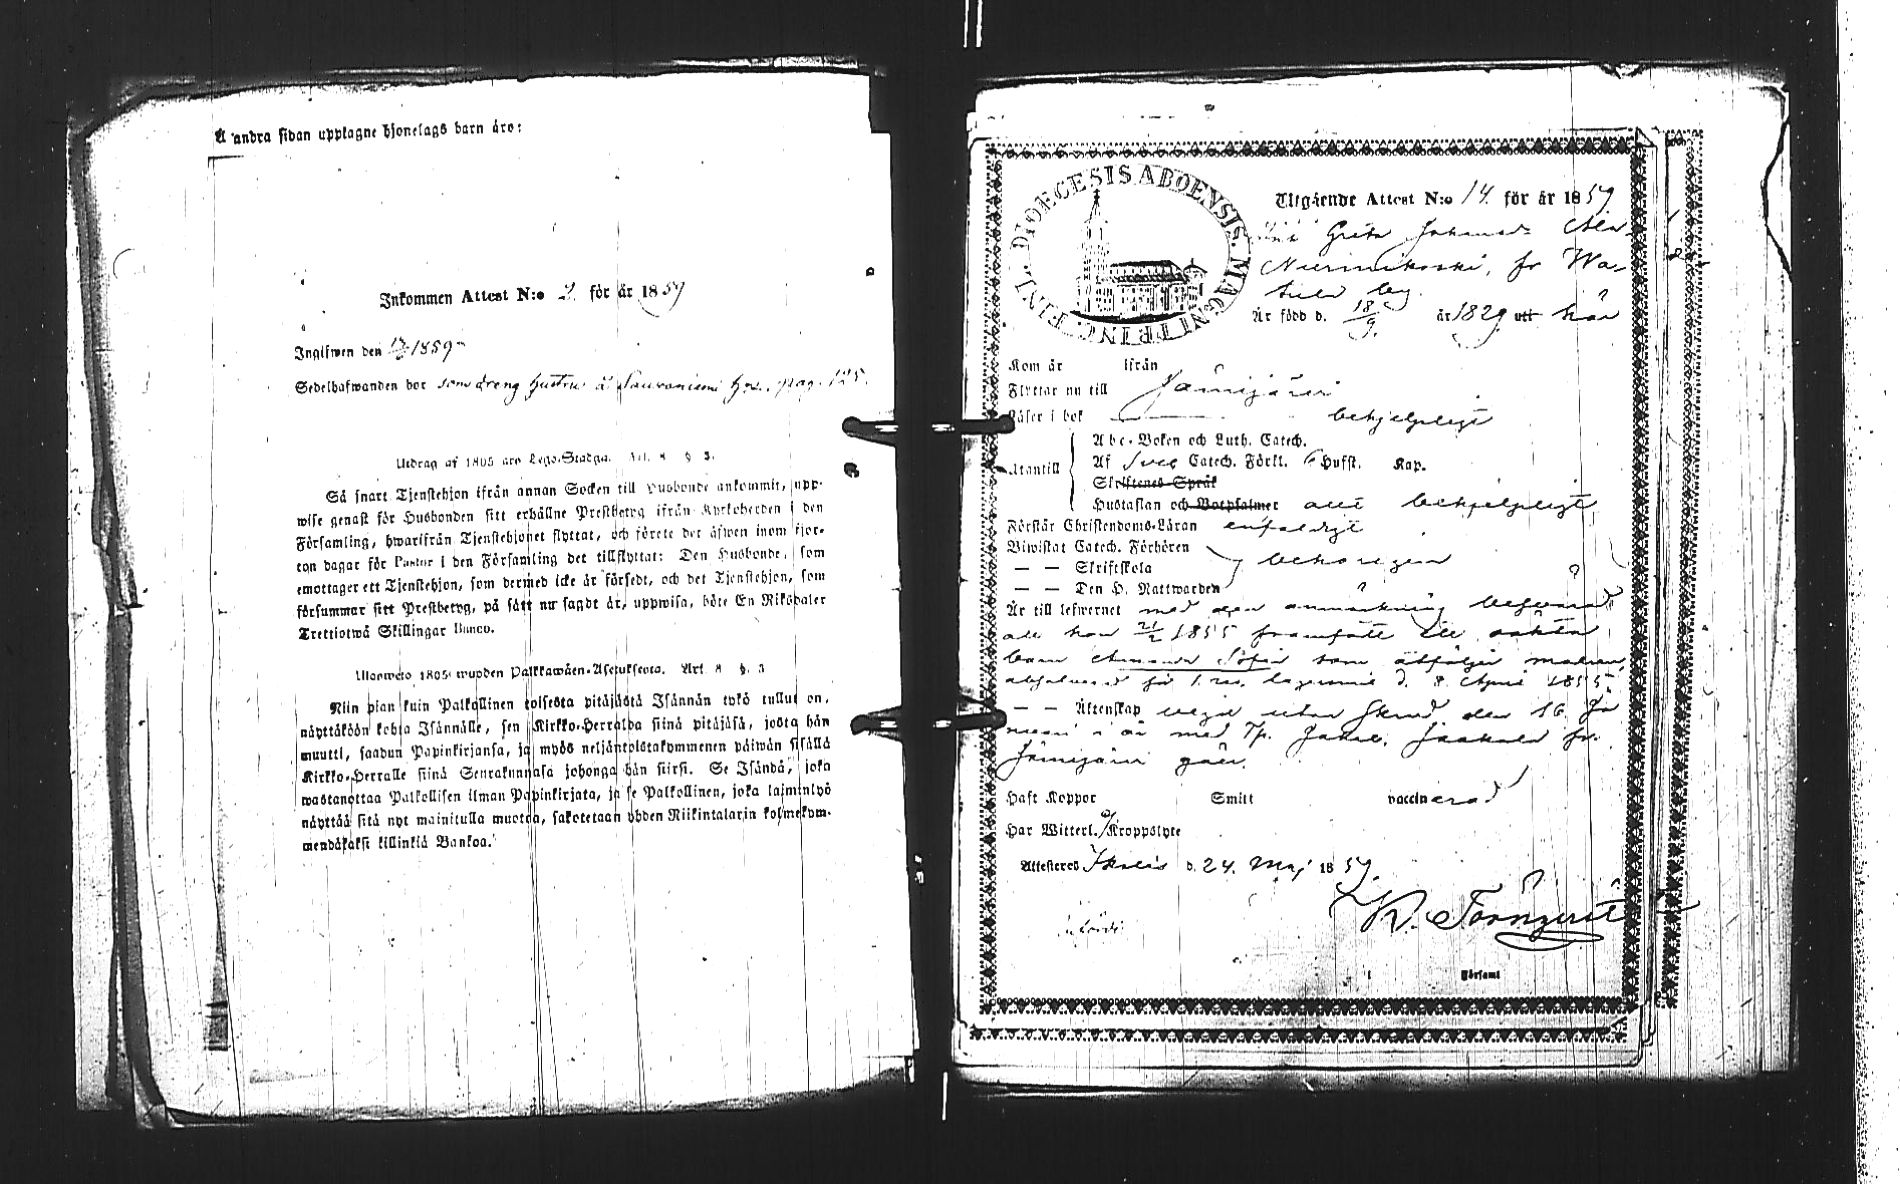 Å andra sidan upptagne hjonelags barn äro:
Inkommen Attest N:o 2. för år 1859
Inglswen den 1859
Sedelhafwanden bor som dreng hustru å Sauvoniemi pag. 125.
Utdrag af 1805 års Lego-Stadga. Art. 8 §. 3.
Så snart Tjenstehjon ifrån annan Socken till Husbonde ankommit, upp-
wise genast för Husbonden sitt erhållne Prestbetyg ifrån Kyrkoherden i den
Församling, hwarifrån Tjenstehjonet flyttat, och förete det äfwen inom fjor-
ton dagar för Pastor i den Församling det tillflyttat: Den Husbonde, som
emottager ett Tjenstehjon, som dermed icke är försedt, och det Tjenstehjon, som
försummar sitt Prestbetyg, på sätt nu sagdt är, uppwisa, böte En Riksdaler
Trettiotwå Skillingar Banco.
Ulosweto 1805 wuoden Palkkawäen-Asetuksesta. Art. 8 §. 3
Niin pian kuin Palkollinen toisesta pitäjästä Isännän tykö tullut on,
näyttäköön kohta Isännälle, sen Kirkko-Herralda siinä pitäjäsä, josta hän
muutti, saadun Papinkirjansa, ja myös neljäntoistakymmenen päiwän sisällä
Kirkko-Herralle siinä Seurakunnasa johonga hän siirsi. Se Isändä, joka
wastanottaa Palkollisen ilman Papinkirjata, ja se Palkollinen, joka laiminlyö
näyttää sitä nyt mainitulla muotoa, sakotetaan yhden Riikintalarin kolmekym-
mendäkaksi killinkiä Bankoa.
DIOECESIS ABOENSIS. MAGNI PRINC. FINL.
Utgående Attest N:o 14. för år 1859
Greta Johansd. Ala-
Niemikoski, fr Wa-
by.
Är född d. 18/9. år 1829 utt här
Kom år ifrån
Flyttar nu till Jämijärvi
Läser i bok behjelpligt
Utantill
Abc-Boken och Luth. Catech.
Af Sveb Catech. Förkl. 6 Hufst. Kap.
Skriftenes Språk
Hustaflan och Botpsalmer allt behjelpligt
Förstår Christendoms-Läran enfaldigt
Biwistat Catech. Förhören
— — Skriftskola behörigen
— — Den H. Nattwarden
Är till lefwernet med den anmärkning
att hon 21/2 1855 framfödt ett oäkta
barn Amanda Sofia som åtföljer modren,
för d. 8 April 1855
— — Äktenskap utan den 16
i år med Jakob fr.
Jämijärvi
Haft Koppor Smitt vaccinerad
Har Witterl. Kroppslyte
Attesteras Ikalis d. 24. Maj 1859.
K. Törnqvist
Församl